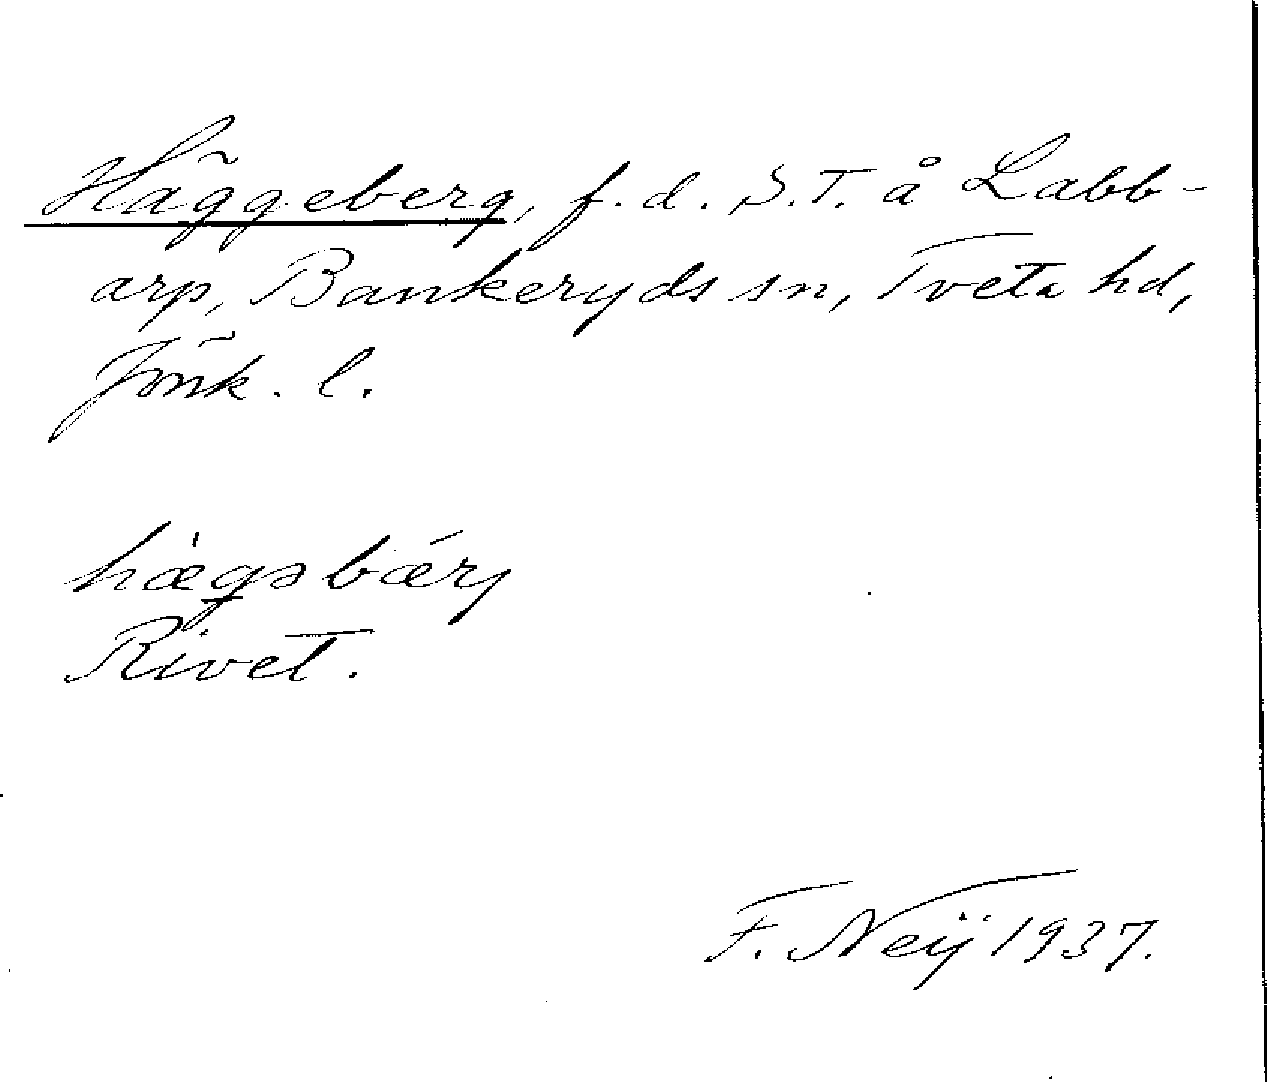 Häggeberg, f. d. S.T. å Labb-
arp, Bankeryds sn, Tveta hd,
Jönk. l.
hæ̀gəbærj
Rivet.
F. Neÿ 1937.